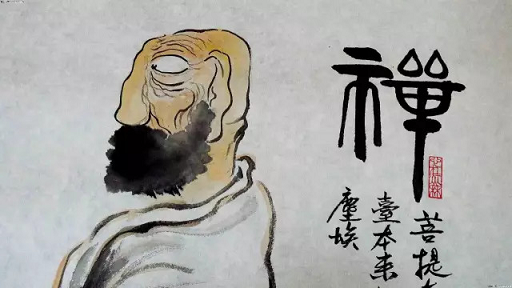 禪
菩提
臺本来
塵埃